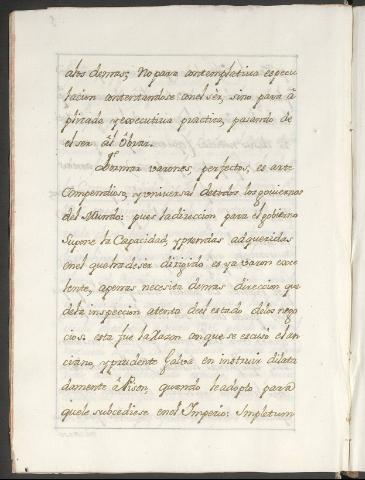 alos demas; No para contemplativa especu
lacion contentandose con el sèr, sino para ã
plicada, y executiva practica, pasando de
el ser àl Obrar.
Formar varones, perfectos, es arte
Compendioso, y universal de todos los goviernos
del Mundo: pues la direccion para el govierno
Supone la Capacidad, y prendas adqueridas
en el que ha de ser dirigido es ya varon exce
lente, apenas necesita de mas direccion que
de la inspeccion atenta de el estado de los nego
cios: esta fue la Raçon con que se escusò el an
ciano, y prudente Galva en instruir dilata
damente à Pison, quando le adoptò para
que le subcediese en el Imperio: Impletum